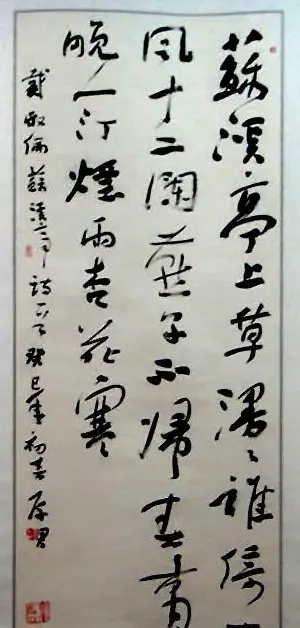 蘇溪亭上草漫〻誰倚
風十二闌燕子不歸春事
晚一汀煙雨杏花寒
戴叔倫蘇溪亭詩 癸巳年初春